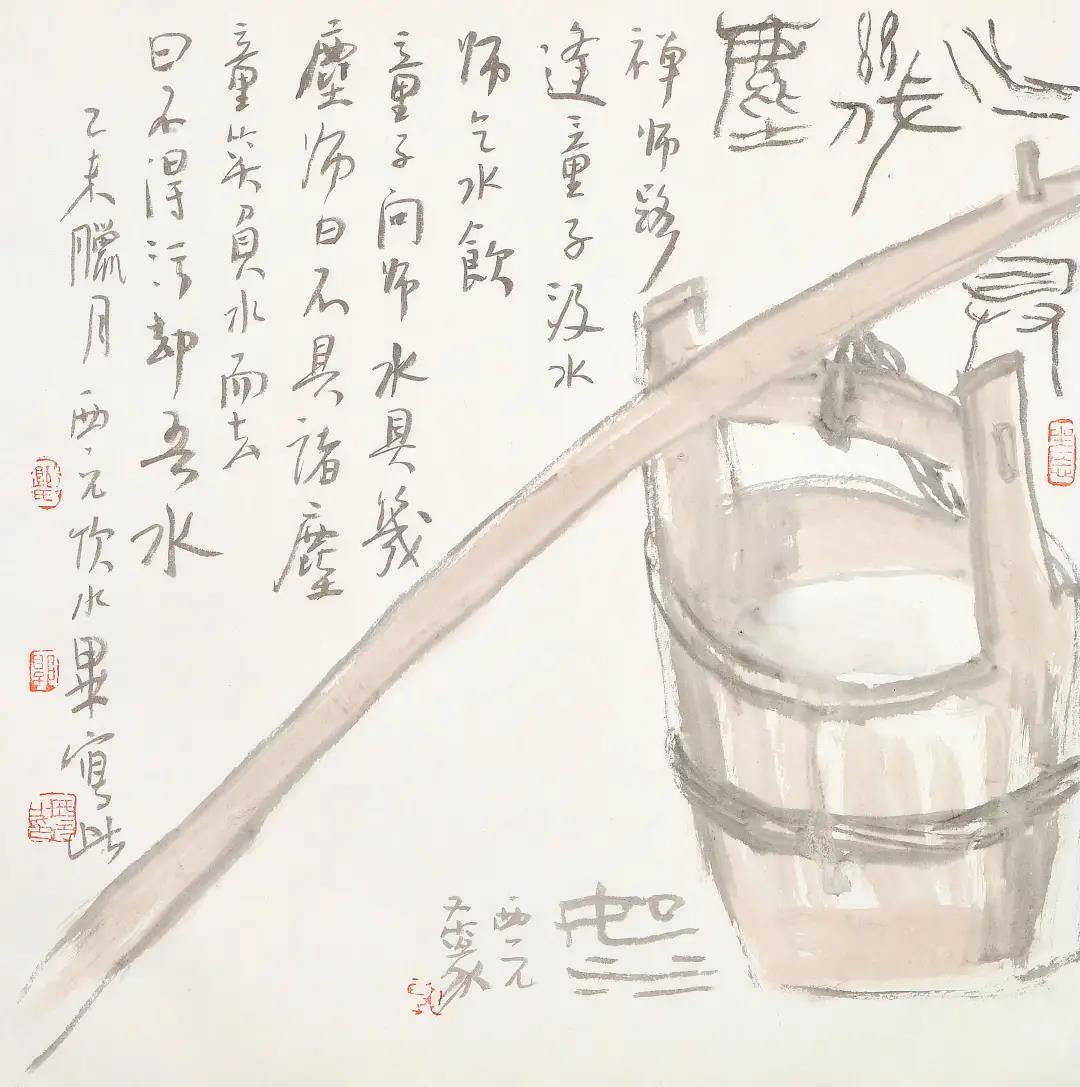 幾
塵
禅师路
逢童子汲水
师乞水飲
童子问师水具幾
塵师曰不具諸塵
童笑負水而去
曰不得污却吾水
乙未臘月西元饮水畢寫此
西元